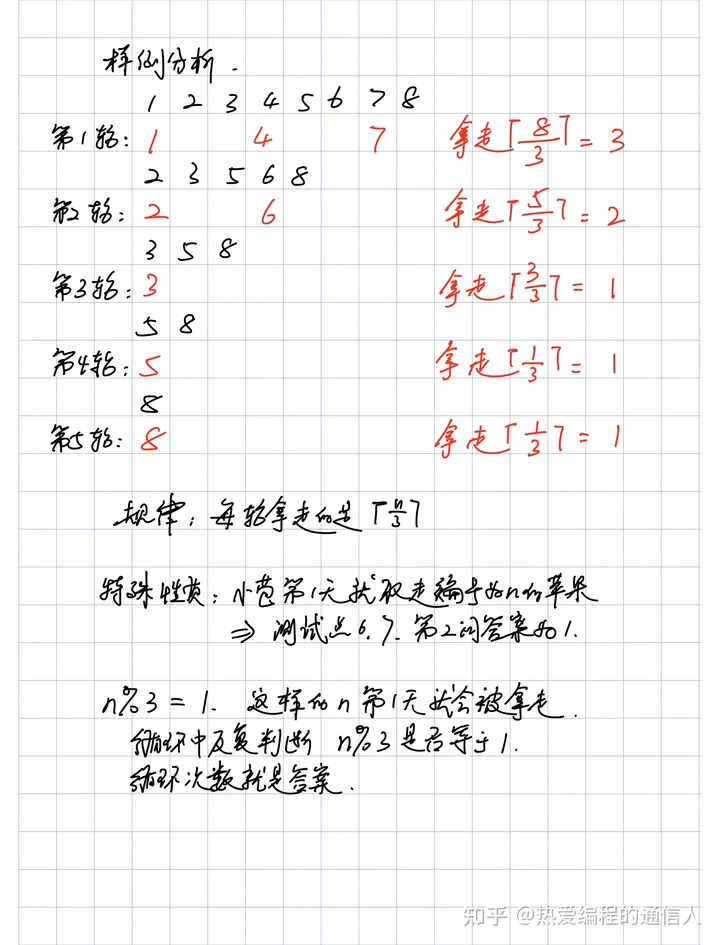 样例分析.
1 2 3 4 5 6 7 8
第1轮: 1 4 7 拿走⌈8/3⌉= 3
2 3 5 6 8
第2轮: 2 6 拿走⌈5/3⌉= 2
3 5 8
第3轮: 3 拿走⌈3/3⌉= 1
5 8
第4轮: 5 拿走⌈1/3⌉= 1
8
第5轮: 8 拿走⌈1/3⌉= 1
规律: 每轮拿走的是⌈n/3⌉
特殊性质: 小苞第1天就取走编号为n的苹果
⇒ 测试点6.7. 第2问答案为1.
n%3 = 1. 这样的n第1天就会被拿走.
循环中反复判断 n%3是否等于1.
循环次数就是答案.
知乎 @热爱编程的通信人